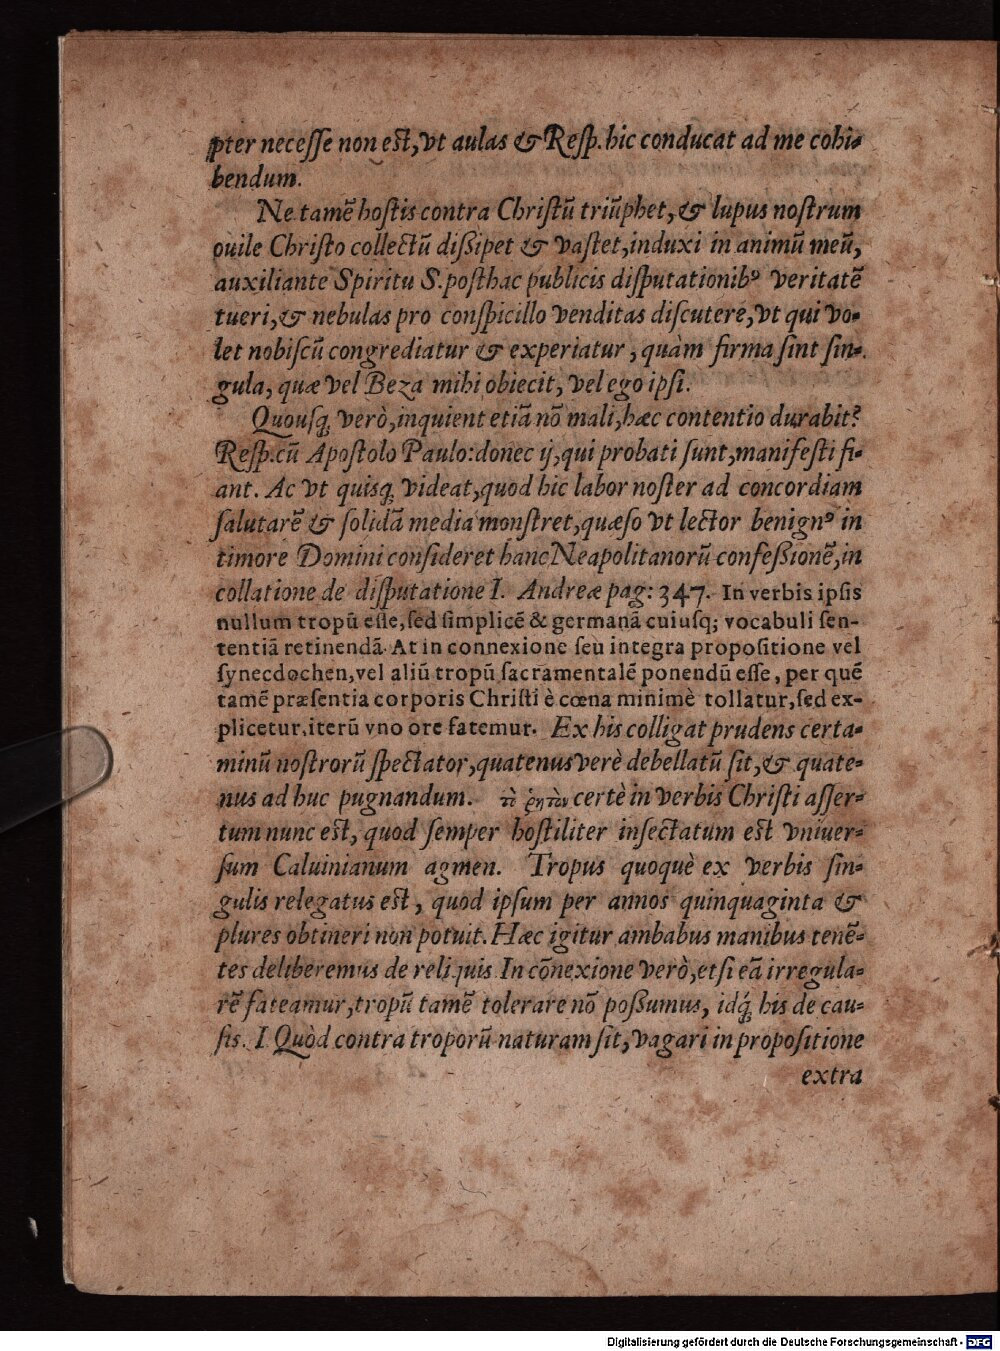 pter necesse non est, vt aulas & Resp. hic conducat ad me cohi-
bendum.
Ne tamẽ hostis contra Christũ triũphet, & lupus nostrum
ouile Christo collectũ dißipet & vastet, induxi in animũ meũ,
auxiliante Spiritu S. posthac publicis disputationibꝰ veritatẽ
tueri, & nebulas pro conspicillo venditas discutere, vt qui vo-
let nobiscũ congrediatur & experiatur, quàm firma sint sin-
gula, quæ vel Beza mihi obiecit, vel ego ipsi.
Quousq; verò, inquient etiã nõ mali, hæc contentio durabit?
Resp. cũ Apostolo Paulo: donec ij, qui probati sunt, manifesti fi-
ant. Ac vt quisq; videat, quod hic labor noster ad concordiam
salutarẽ & solidã media monstret, quæso vt lector benignꝰ in
timore Domini consideret hanc Neapolitanorũ confeßionẽ, in
collatione de disputatione I. Andreæ pag: 347. In verbis ipsis
nullum tropũ esse, sed simplicẽ & germanã cuiusq; vocabuli sen-
tentiã retinendã. At in connexione seu integra propositione vel
synecdochen, vel aliũ tropũ sacramentalẽ ponendũ esse, per quẽ
tamẽ præsentia corporis Christi è cœna minimè tollatur, sed ex-
plicetur, iterũ vno ore fatemur. Ex his colligat prudens certa-
minũ nostrorũ spectator, quatenus verè debellatũ sit, & quate-
nus ad huc pugnandum. τὸ ῥητὸν certè in verbis Christi asser-
tum nunc est, quod semper hostiliter insectatum est vniuer-
sum Caluinianum agmen. Tropus quoquè ex verbis sin-
gulis relegatus est, quod ipsum per annos quinquaginta &
plures obtineri non potuit. Hæc igitur ambabus manibus tenẽ-
tes deliberemus de reliquis. In cõnexione verò, etsi eã irregula-
rẽ fateamur, tropũ tamẽ tolerare nõ poßumus, idq́; his de cau-
sis. I. Quòd contra troporũ naturam sit, vagari in propositione
extra
Digitalisierung gefördert durch die Deutsche Forschungsgemeinschaft - DFG